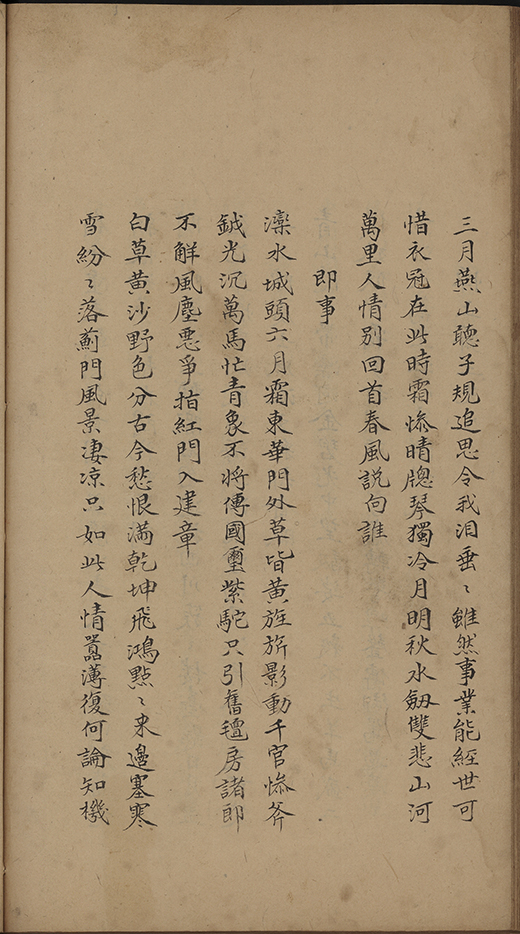 三月燕山聽子規追思令我泪垂〻雖然事業能經世可
惜衣冠在此時霜惨晴牕琴獨冷月明秋水劔雙悲山河
萬里人情別回首春風説向誰
即事
灤水城頭六月霜東華門外草皆黃旌旂影動千官惨斧
鉞光沉萬馬忙青象不將傳國璽紫駝只引舊氊房諸郎
不觧風塵悪爭指紅門入建章
白草黃沙野色分古今愁恨滿乾坤飛鴻點〻来邊塞寒
雪紛〻落薊門風景凄凉只如此人情囂薄復何論知機